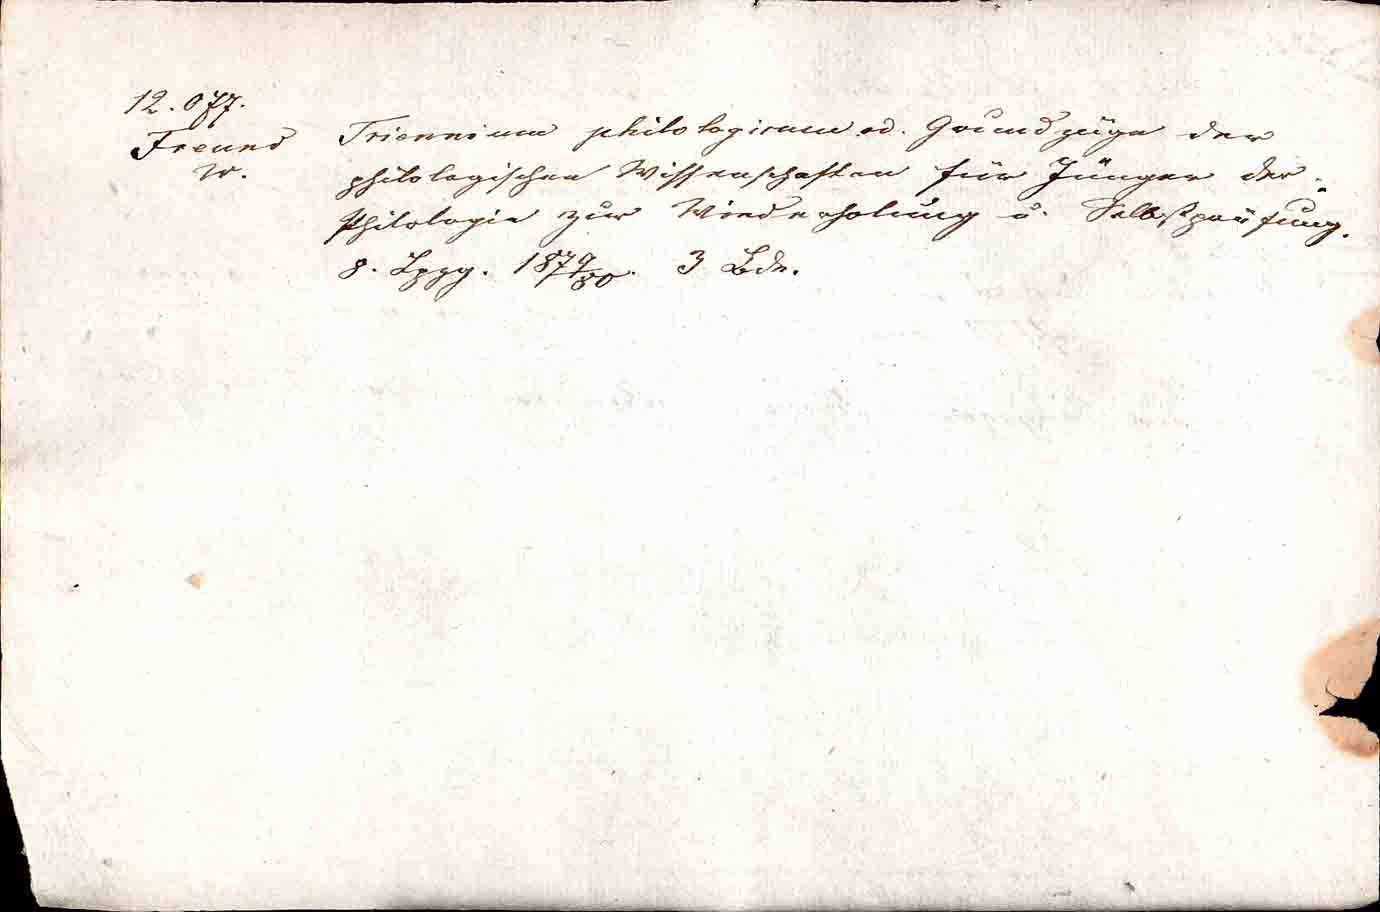 12.077.
Freund Triennium philologicum od. Grundzüge der
W. philologischen Wissenschaften für Jünger der
Philologie zur Wiederholung u. Selbstprüfung.
8. Lpzg. 1879/80. 3 Bde.